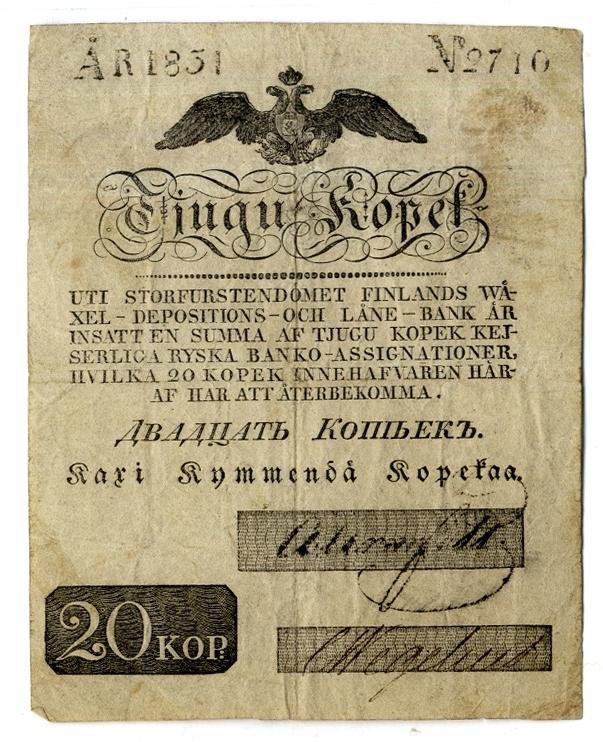 ÅR 1831 No 2710
Tjugu Kopek
UTI STORFURSTENDÖMET FINLANDS WÄ-
XEL-DEPOSITIONS-OCH LÅNE-BANK ÄR
INSATT EN SUMMA AF TJUGU KOPEK KEJ-
SERLIGA RYSKA BANKO-ASSIGNATIONER,
HVILKA 20 KOPEK INNEHAFVAREN HÄR-
AF HAR ATT ÅTERBEKOMMA.
ДВАДЦАТЬ КОПѢЕКЪ.
Kaxi Kymmendä Kopekaa.
20 KOP.